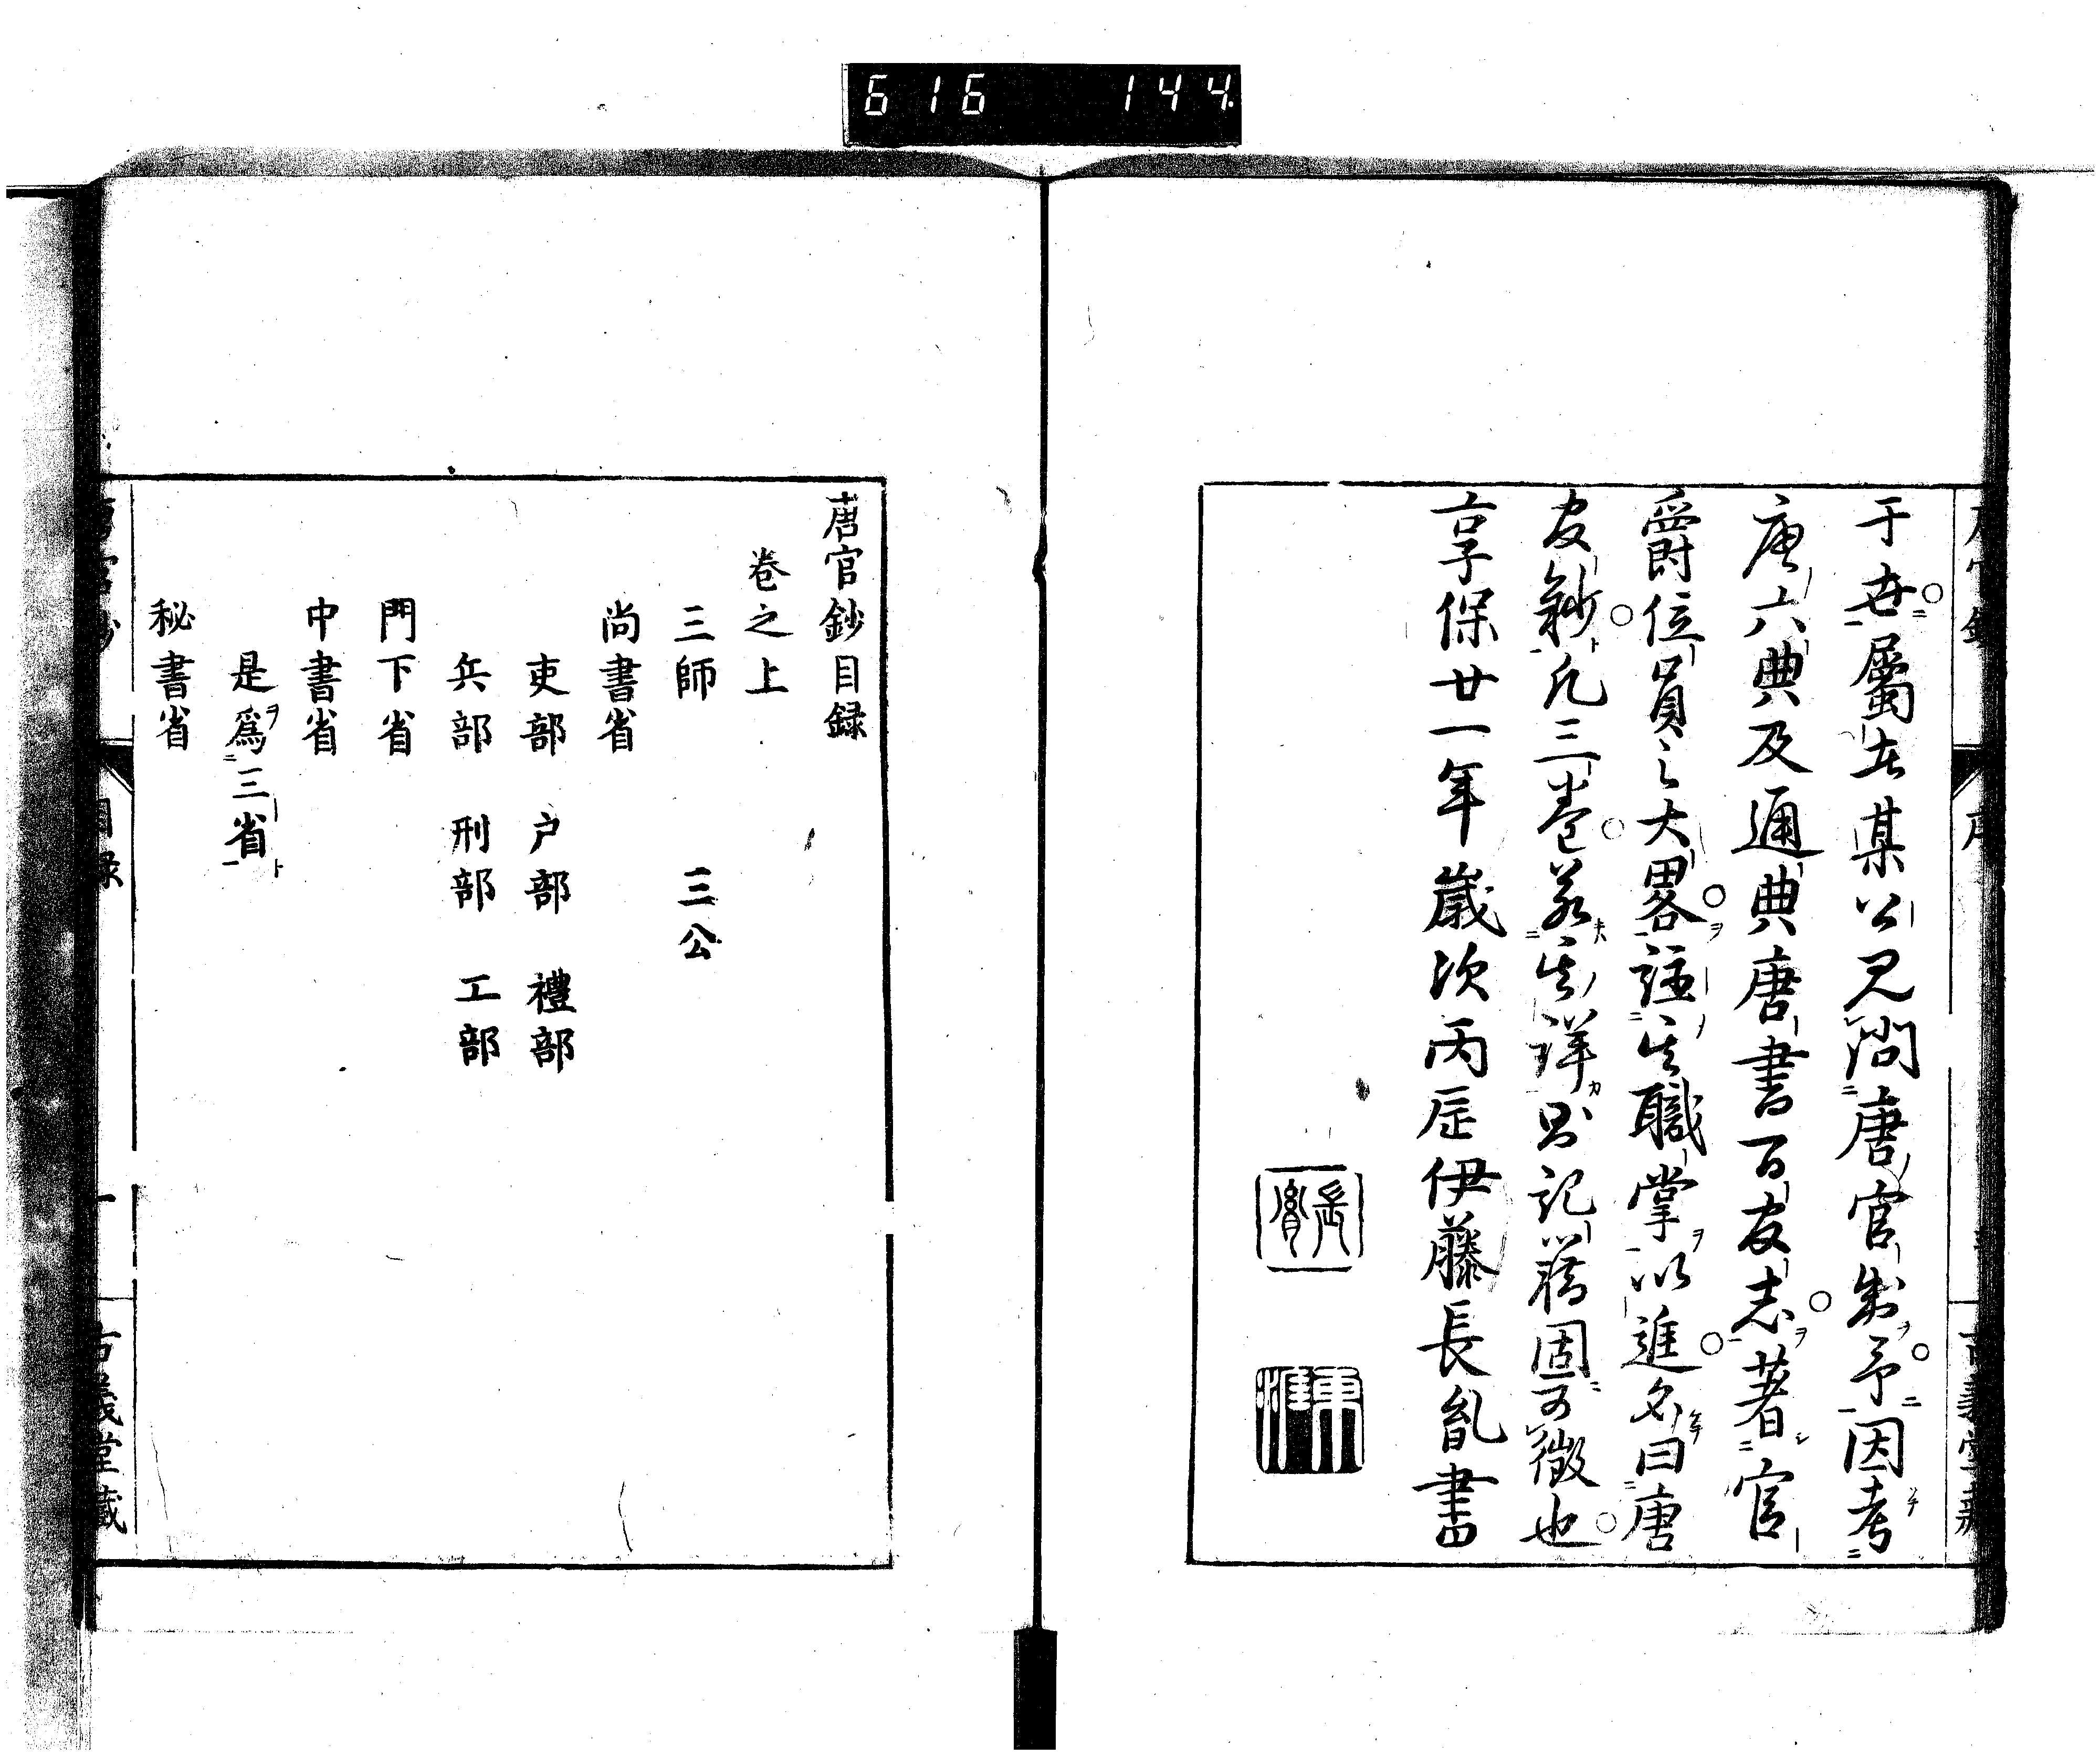 616 144
于世屬在某公見問唐官制予因考
唐六典及通典唐書百官志著官
爵位員之大畧註其職掌以進名曰唐
官鈔凡三卷若其詳則記籍固可徵也
享保廿一年歲次丙辰伊藤長胤書
長胤
東涯
唐官鈔目録
卷之上
三師 三公
尚書省
吏部 户部 禮部
兵部 刑部 工部
門下省
中書省
是爲三省
秘書省
唐官鈔 目録 一 古義堂藏